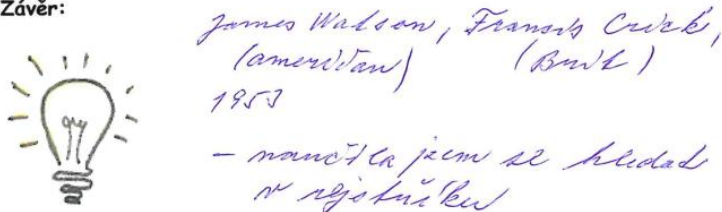 Závěr:
James Watson, Francis Crick,
(američan) (Brit)
1953
- naučila jsem se hledat
v rejstříku